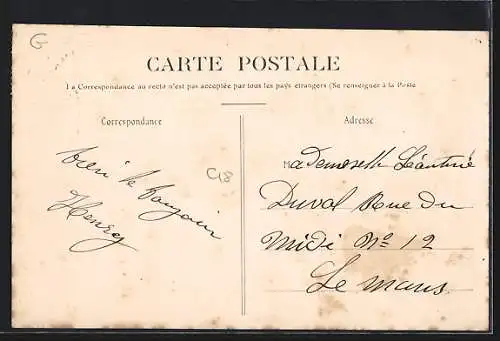 G
CARTE POSTALE
La Correspondance au recto n'est pas acceptée par tous les pays étrangers (Se renseigner à la Poste
Correspondance
Adresse
C18
bien le bonjour
Henrey
Mademoiselle Léontine
Duval Rue du
Midi No 12
Le Mans